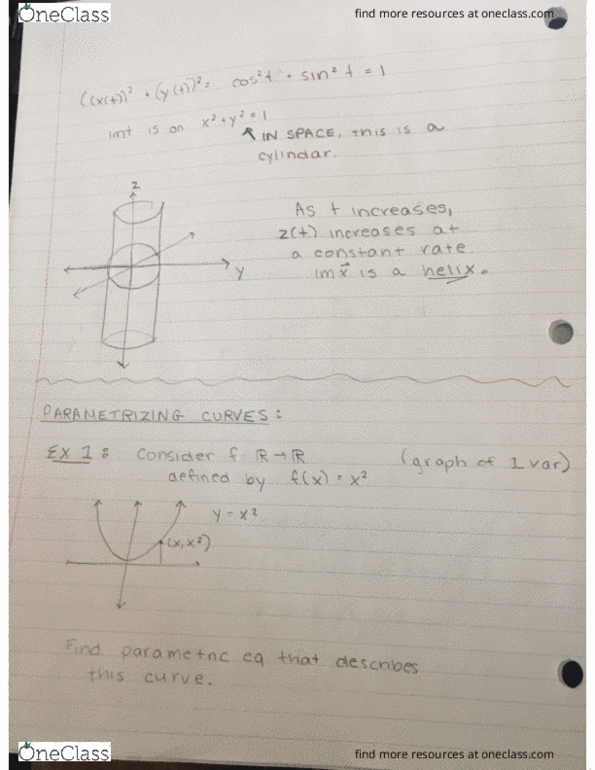 OneClass
find more resources at oneclass.com
((x(t))² + (y(t))² = cos²t + sin²t = 1
imt is on x² + y² = 1
IN SPACE, this is a
cylindar.
z
As t increases,
z(t) increases at
a constant rate
im x⃗ is a helix.
y
PARAMETRIZING CURVES:
EX 1: Consider f ℝ→ℝ (graph of 1 var)
defined by f(x) = x²
y = x²
(x, x²)
Find parametric eq that describes
this curve.
OneClass
find more resources at oneclass.com